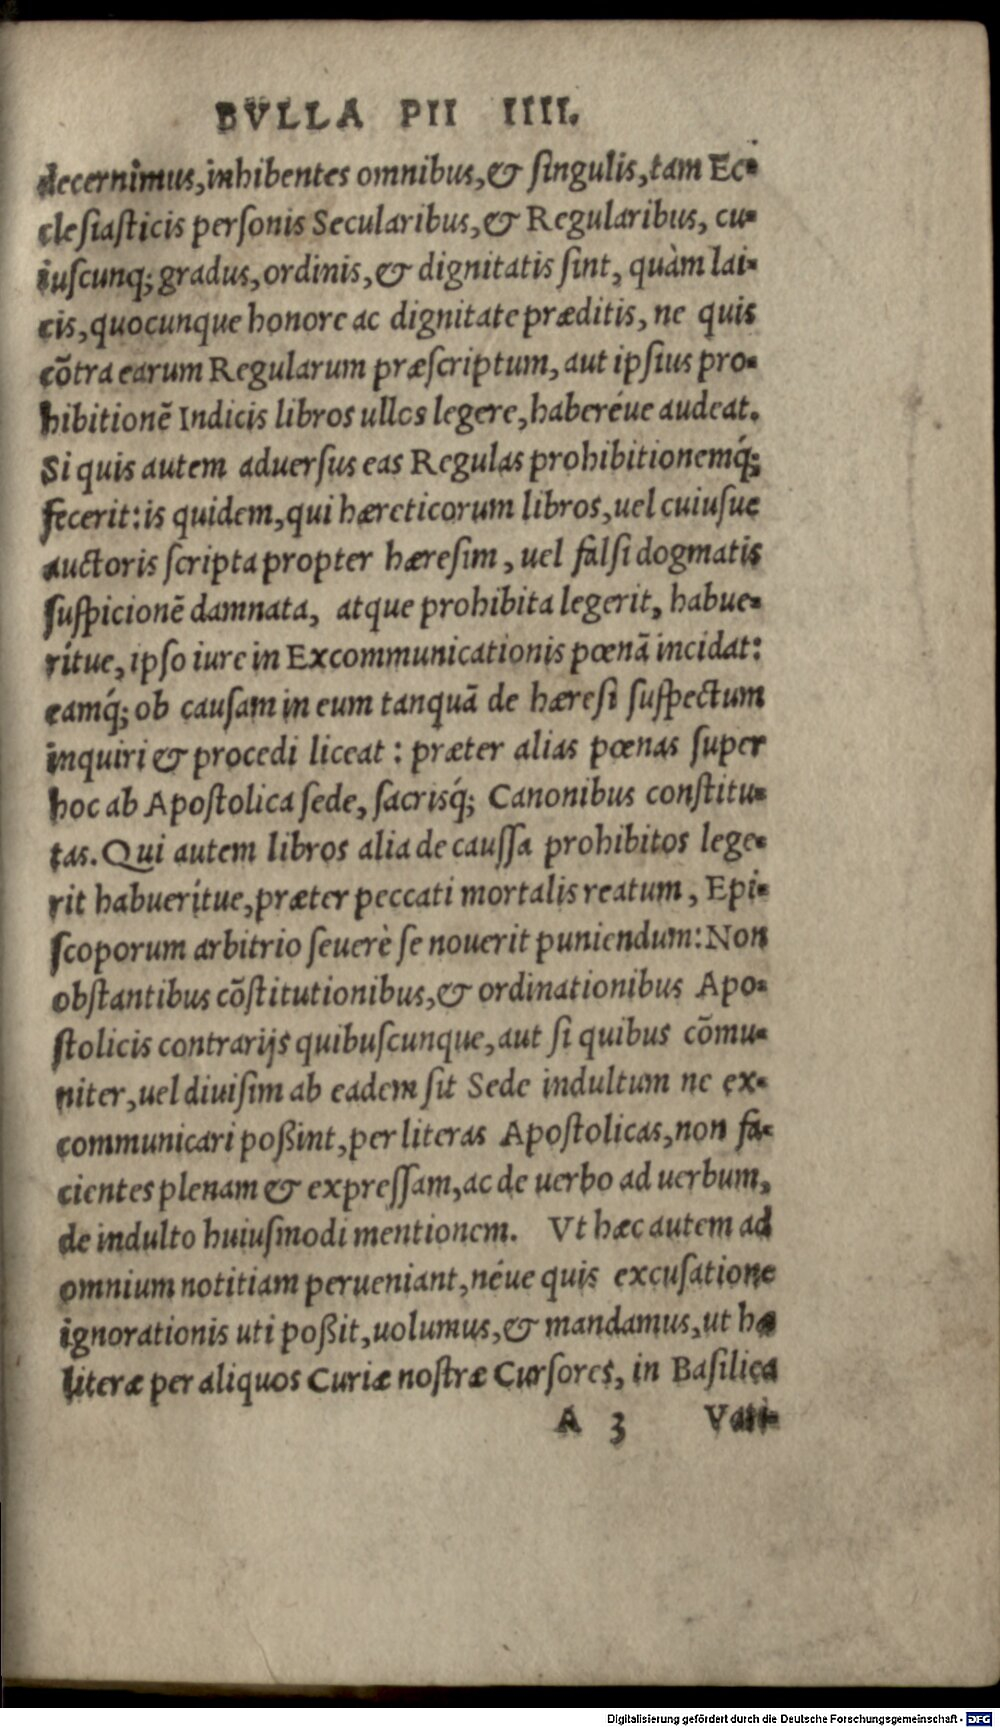 BVLLA PII IIII.
decernimus,inhibentes omnibus,& ſingulis,tam Ec-
cleſiaſticis perſonis Secularibus,& Regularibus, cu-
iuſcunq; gradus,ordinis,& dignitatis ſint, quàm lai-
cis,quocunque honore ac dignitate præditis, ne quis
cõtra earum Regularum præſcriptum, aut ipſius pro-
hibitionẽ Indicis libros ullos legere,haberéue audeat.
Si quis autem aduerſus eas Regulas prohibitionemq́;
fecerit:is quidem,qui hæreticorum libros,uel cuiuſue
auctoris ſcripta propter hæreſim, uel falſi dogmatis
ſuſpicionẽ damnata, atque prohibita legerit, habue-
rítue, ipſo iure in Excommunicationis pœnã incidat:
eamq́; ob cauſam in eum tanquã de hæreſi ſuſpectum
inquiri & procedi liceat : præter alias pœnas ſuper
hoc ab Apoſtolica ſede, ſacrisq́; Canonibus conſtitu-
tas. Qui autem libros alia de cauſſa prohibitos lege-
rit habuerítue,præter peccati mortalis reatum, Epi-
ſcoporum arbitrio ſeuerè ſe nouerit puniendum:Non
obſtantibus cõſtitutionibus,& ordinationibus Apo-
ſtolicis contrarijs quibuſcunque,aut ſi quibus cõmu-
niter,uel diuiſim ab eadem ſit Sede indultum ne ex-
communicari poßint,per literas Apoſtolicas,non fa-
cientes plenam & expreſſam,ac de uerbo ad uerbum,
de indulto huiuſmodi mentionem. Vt hæc autem ad
omnium notitiam perueniant,néue quis excuſatione
ignorationis uti poßit,uolumus,& mandamus,ut hæ
literæ per aliquos Curiæ noſtræ Curſores, in Baſilica
A 3 Vati-
Digitalisierung gefördert durch die Deutsche Forschungsgemeinschaft - DFG